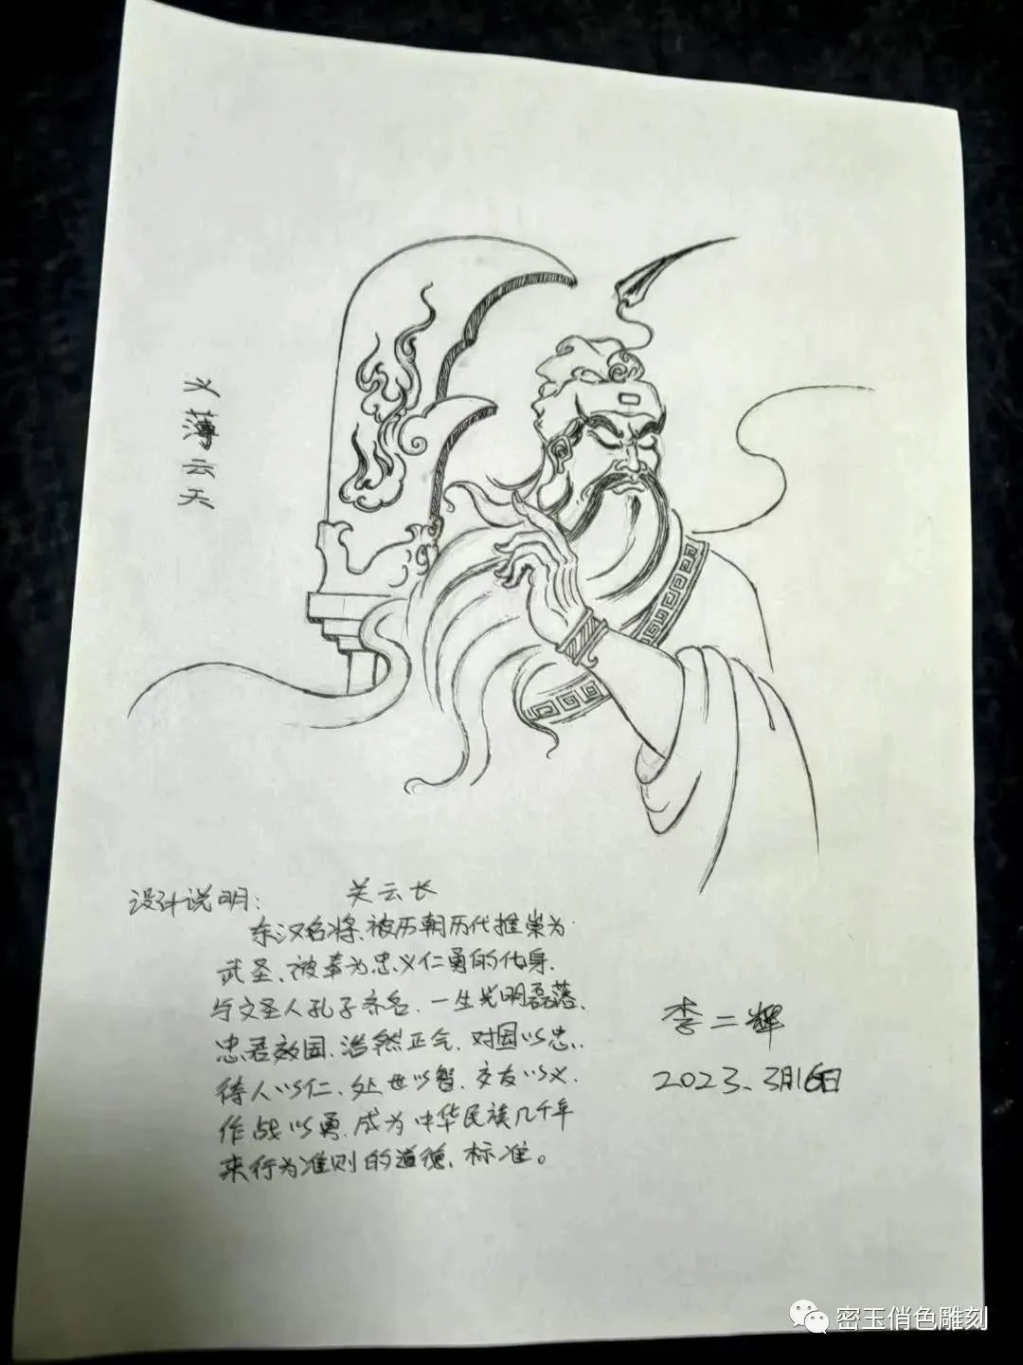 义薄云天
设计说明： 关云长
东汉名将、被历朝历代推崇为
武圣、被奉为忠义仁勇的化身、
与文圣人孔子齐名、一生光明磊落、
忠君效国、浩然正气、对国以忠、
待人以仁、处世以智、交友以义、
作战以勇、成为中华民族几千年
来行为准则的道德、标准。
李二辉
2023、3月16日
密玉俏色雕刻